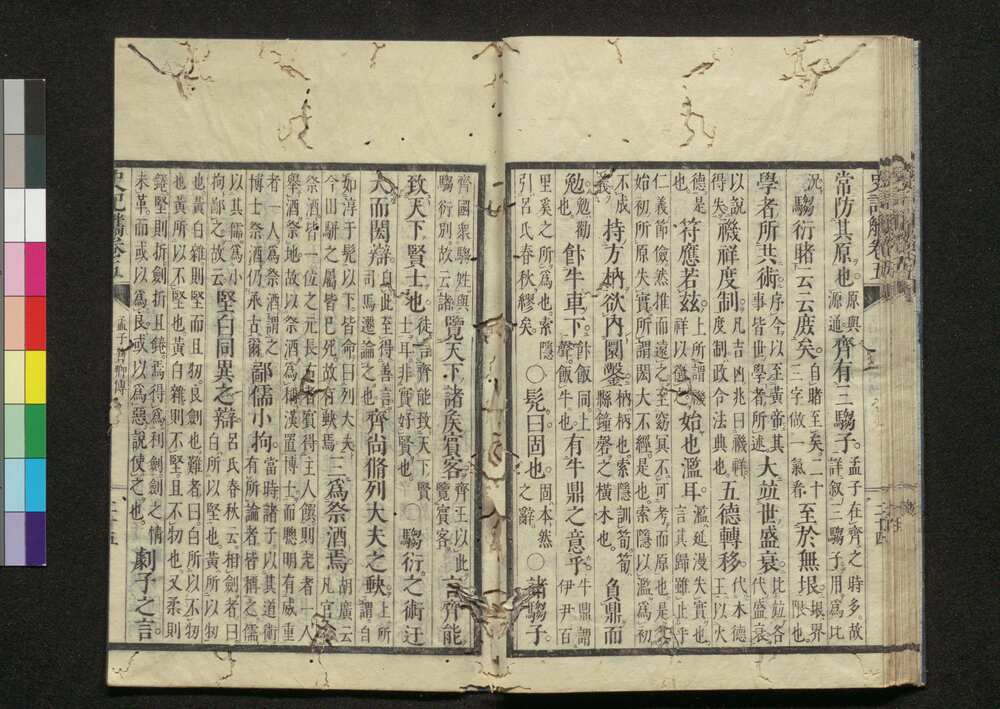 常防其原也。原與源通。齊有三騶子。孟子在齊之時多故詳叙三騶子。用為比
況。騶衍睹云云廢矣。自睹至矣。二十三字做一氣看。至於無垠。垠界限也。
學者所共術。序今以至黃帝。其事皆世學者所述。大並世盛衰。比並各代盛衰
以說得失。禨祥度制。凡吉凶兆曰禨祥。度制政令法典也。五德轉移。代本德王以火
德是也。符應若茲。上所謂禨祥以徵之。始也濫耳。濫延漫失實也。言其歸雖止乎
仁義節儉然推而遠之至窈冥不可考而原也是其
始初所原失實所謂閎大不經是也索隱以濫為初
不成義。持方枘欲內圜鑿。枘柄也索隱訓筍。筍縣鐘磬之橫木也。負鼎而
勉。勉勸也。飰牛車下。飰飯同上聲。飯牛也。有牛鼎之意乎。牛鼎謂伊尹百
里奚之所為也。索隱引呂氏春秋繆矣。○髡曰固也。固本然之辭。○諸騶子。
齊國衆騶姓。與騶衍別。故云諸。覽天下諸矦賓客。齊王以此覽賓客。言齊能
致天下賢士也。徒言齊能致天下賢士耳。非實好賢也。○騶衍之術迂
大而閎辯。自此至得善言。司馬遷論之也。齊尚脩列大夫之缺。上所謂自
如淳于髡以下。皆命曰列大夫。今田駢之屬皆已死。故有缺焉。三為祭酒焉。胡廣云凡官名
祭酒皆一位之元長。古者賓得主人饌則老者一人
舉酒祭地。故以祭酒為稱。漢置博士而聰明有威重
者一人為祭酒。謂之博士祭酒。仍承古爾。鄙儒小拘。當時諸子以其道術有所論者皆稱之儒
以其儒為小拘鄙之。故云。堅白同異之辯。呂氏春秋云相劍者曰白所以堅也。黃所以牣
也。黃白雜則堅而且牣。良劍也。難者曰白所以不牣
也。黃所以不堅也。黃白雜則不堅且不牣也。又柔則
錈堅則折。劍折且錈。焉得為利劍。劍之情
未革而或以為良。或以為惡。說使之也。劇子之言。